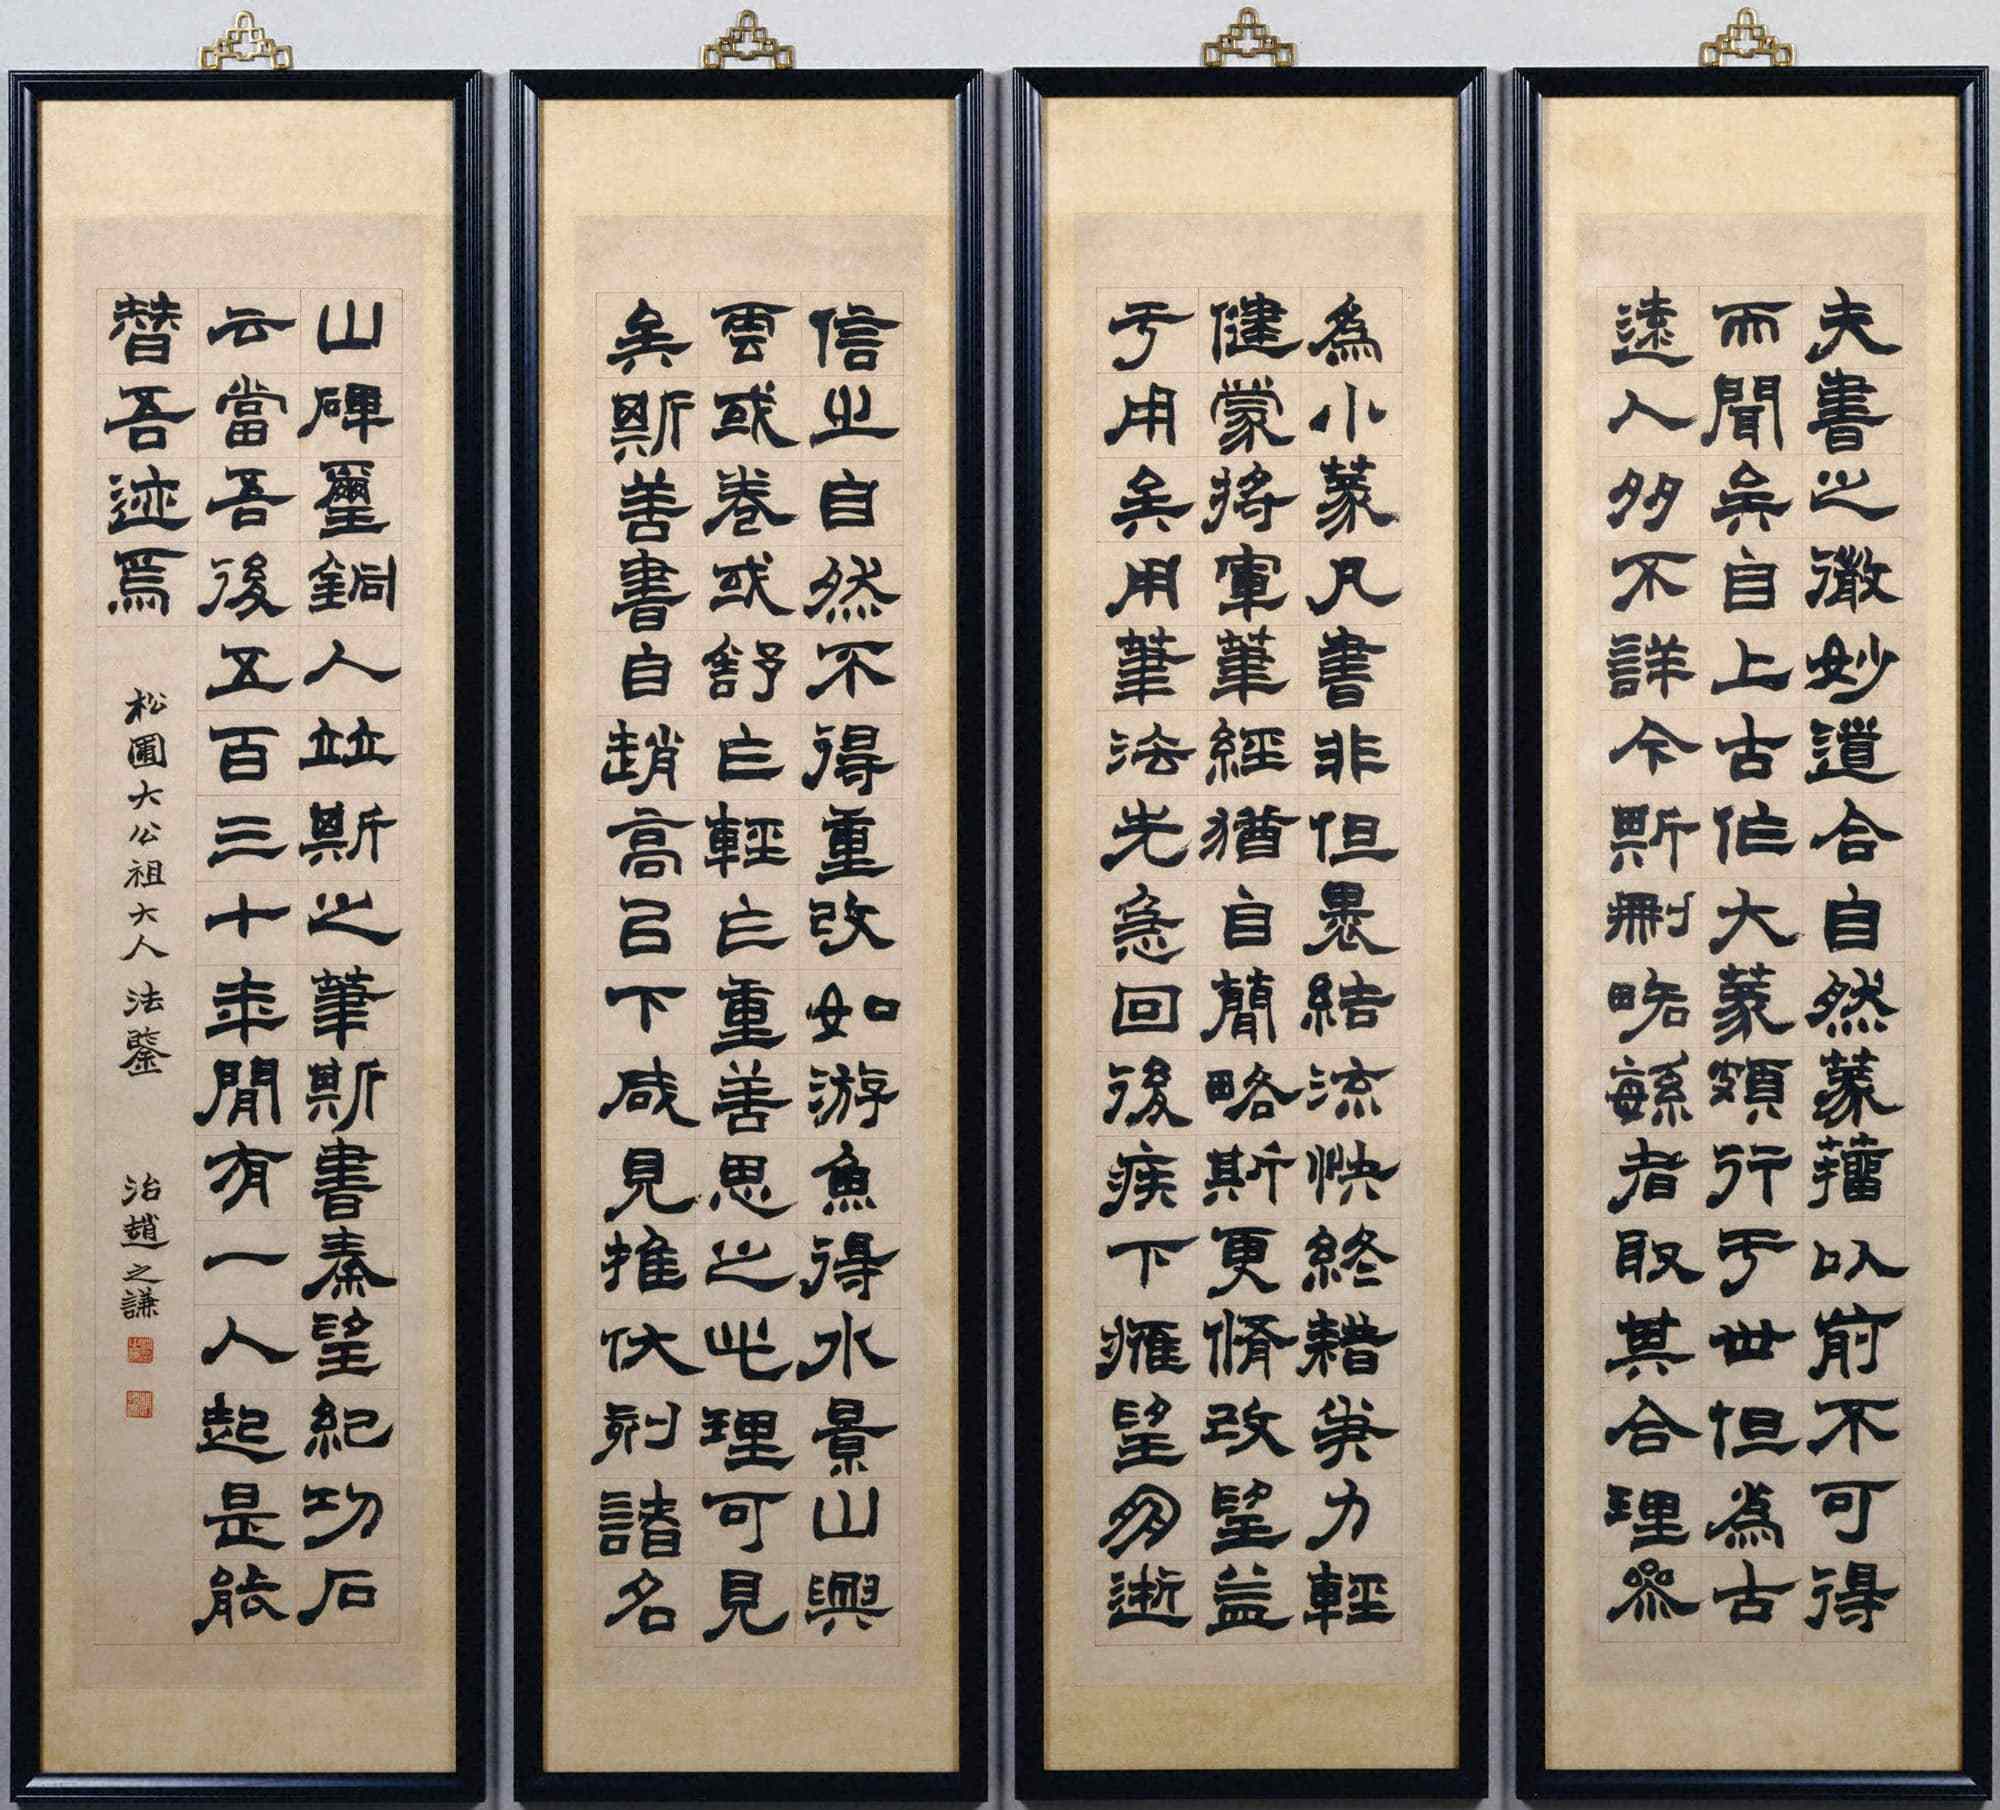 夫書之微妙道合自然篆籀以前不可得
而聞矣自上古作大篆頗行于世但為古
遠人多不詳今斯刪略繇者取其合理叅
為小篆凡書非但裹結流快終藉筆力輕
健蒙將軍筆經猶自簡略斯更脩改望益
于用矣用筆法先急回後疾下鷹望朋逝
信之自然不得重改如游魚得水景山興
雲或卷或舒乍輕乍重善思之此理可見
矣斯善書自趙高以下咸見推伏刻諸名
山碑璽銅人竝斯之筆斯書秦望紀功石
云當吾後五百三十年間有一人起是能
替吾迹焉
松圃大公祖大人 法鑒 治趙之謙